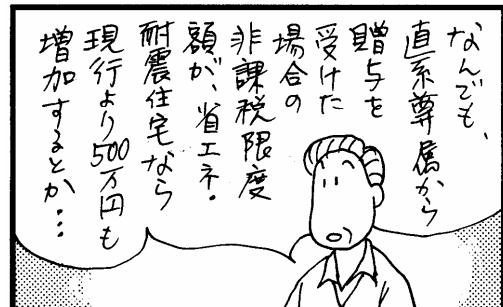 なんでも、
直系尊属から
贈与を
受けた
場合の
非課税限度
額が、省エネ・
耐震住宅なら
現行より500万円も
増加するとか…